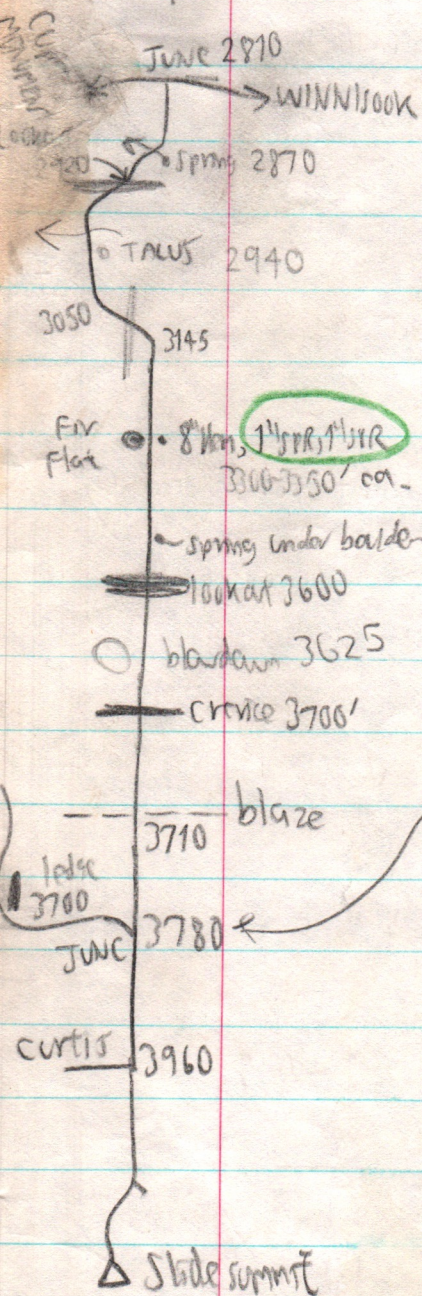 JUNC 2810
WINNISOOK
2920
spring 2870
TALUS 2940
3050
3145
Fir
Flat
8" Hem, 1" SPR, 1" SPR
3300-3350' ca.
spring under boulder
lookout 3600
blowdown 3625
crevice 3700'
blaze
3710
ledge
3700
3780
JUNC
CURTIS
3960
Slide summit